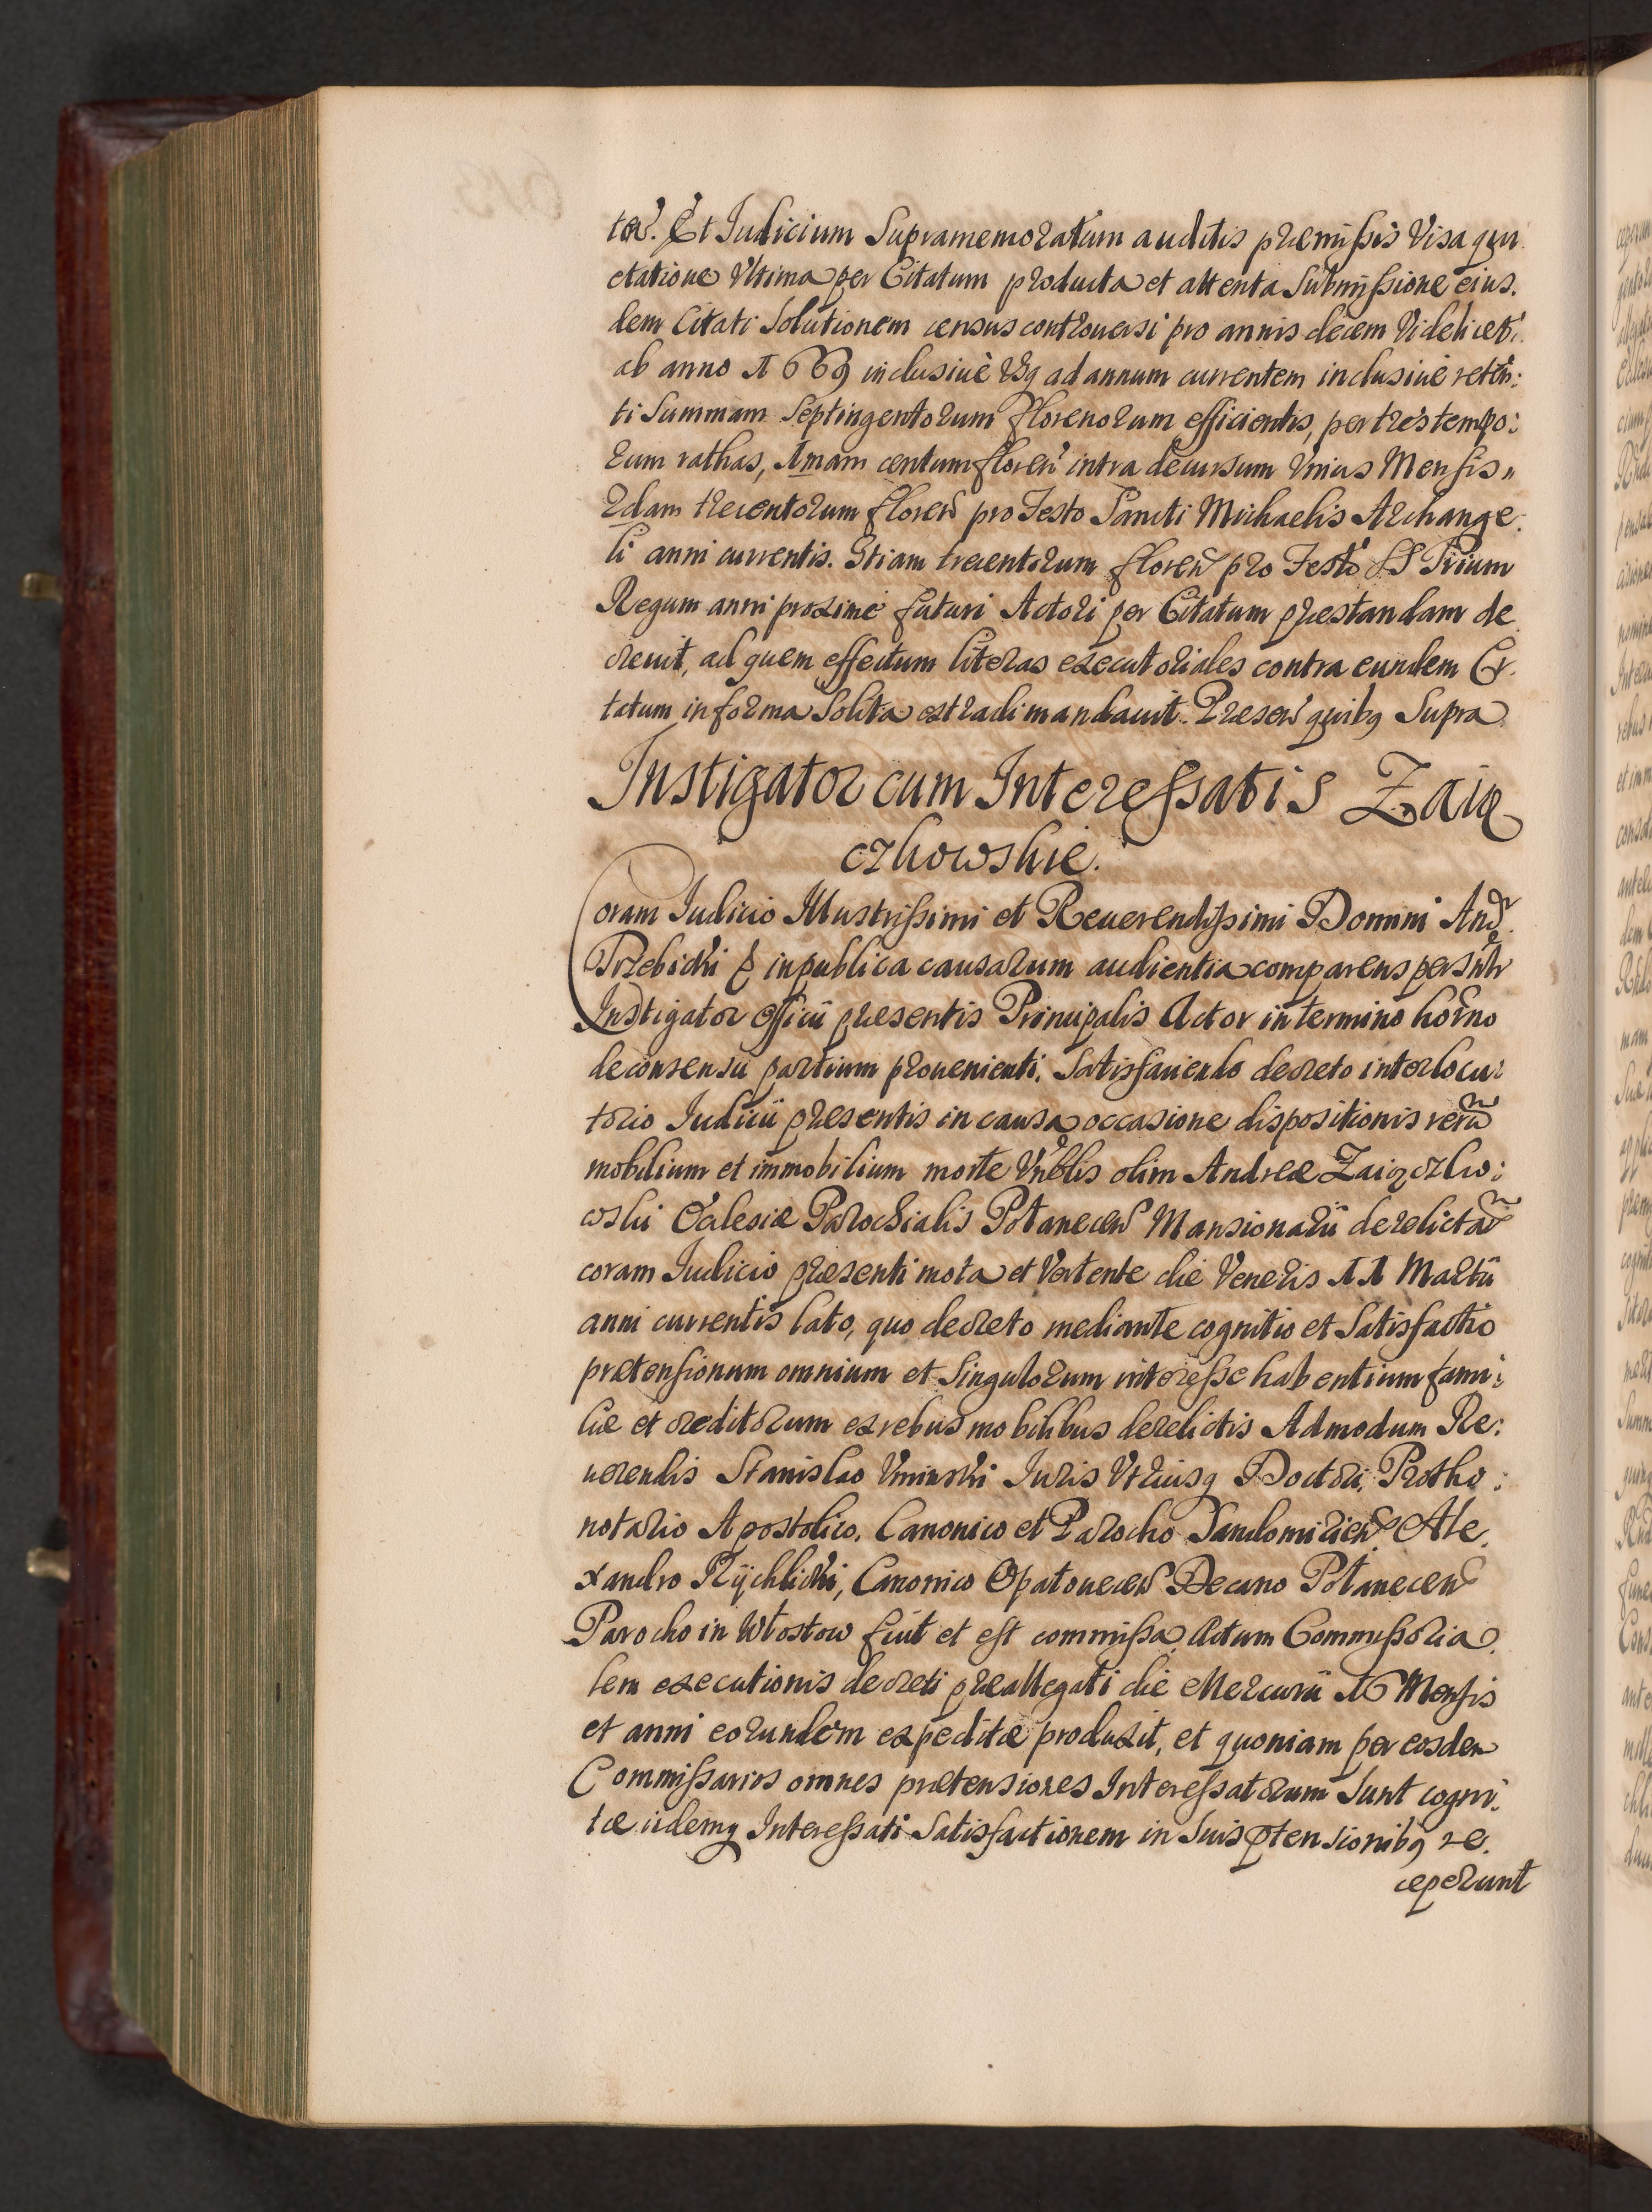 tať. Et Judicium Supramemoratum auditis præmissis Visa qui
etatione Vltima per Citatum producta et attenta Submissione eius.
dem Citati Solutionem census controuersi pro annis decem Videlicet.
ab anno 1669 inclusiuè Vsq ad annum currentem inclusiuè reten:
ti Summam Septingentorum florenorum efficientis, per tres tempo:
rum rathas, 1mam centum floreñ intra decursum Vnius Mensis„
2dam trecentorum floreñ pro Festo Sancti Michaelis Archange.
li anni currentis. 3tiam trecentorum floreñ pro Festo SS Trium
Regum anni proximè futuri Actori per Citatum præstandam de
creuit, ad quem effectum literas executoriales contra eundem Ci.
tatum in forma Solita extradi mandauit. Præseñ quibq Supra
Instigator cum Interessatis Zaią
czkowskie.
Coram Judicio Illustrissimi et Reuerendissimi Domini Andr
Trzebicki & in publica causarum audientia comparens persntr
Instigator Officii præsentis Principalis Actor in termino horno
de consensu partium prouenienti. Satisfaciendo decreto interlocu:
torio Judicii præsentis in causa occasione dispositionis rerũ
mobilium et immobilium morte Vnblis olim Andreæ Zaiączko:
wski Ecclesiæ Parochialis Połaneceñ Mansionarii derelictař
coram Judicio præsenti mota et Vertente die Veneris 11 Martii
anni currentis lato, quo decreto mediante cognitio et Satisfactio
prætensionum omnium et Singulorum interesse habentium fami:
liæ et creditorum ex rebus mobilibus derelictis Admodum Re:
uerendis Stanislao Vminski Juris Vtriusq Doctori, Protho:
notario Apostolico, Canonico et Parocho Sandomirieñ & Ale.
xandro Rÿchlicki, Canonico Opatoueceñ Decano Połaneceñ
Parocho in Włostow fuit et est commissa, Actum Commissoria.
lem executionis decreti præallegati die Mercurii 16 Mensis
et anni eorundem expeditæ produxit, et quoniam per eosdem
Commissarios omnes prætensiones Interessatorum Sunt cogni.
tæ iidemq Interessati Satisfactionem in Suis ptensionibq re.
ceperunt